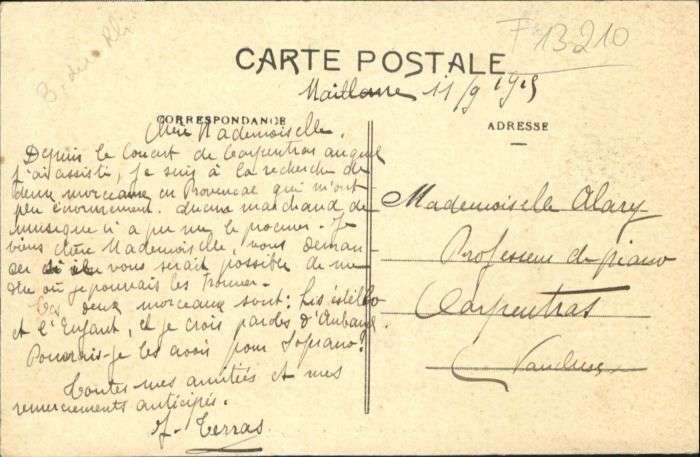 13-210
B. du Rh.
CARTE POSTALE
Maillane 11/9 1915
CORRESPONDANCE
Chère Mademoiselle.
Depuis le Concert de Carpentras auquel
j'ai assisté, je suis à la recherche de
deux morceaux en Provençal qui m'ont
plu énormément. Aucun marchand de
musique n'a pu me le procurer. Je
viens Chère Mademoiselle, vous deman-
der si il vous serait possible de me
dire où je pouvais les trouver.
Ces deux morceaux sont: Lis estello
et l'Enfant, et je crois paroles d'Aubanel
Pourrais-je les avoir pour Soprano?
Toutes mes amitiés et mes
remerciements anticipés.
J. Terras
ADRESSE
Mademoiselle Alary
Professeur de piano
Carpentras
Vaucluse